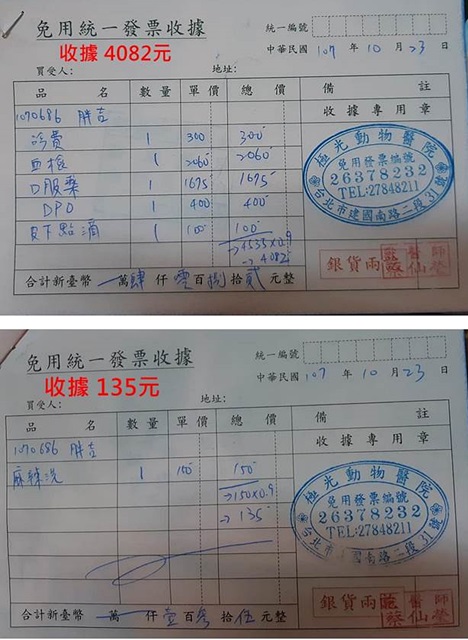 免用統一發票收據
收據 4082元
統一編號
中華民國 107 年 10 月 23 日
買受人： 地址：
品名 數量 單價 總價 備註
收據專用章
1070686 胖吉
診費 1 300 300
血檢 1 2060 2060
口服藥 1 1675 1675
DPO 1 400 400
皮下點滴 1 100 100
→4535x0.9
→4082
極光動物醫院
免用發票編號
26378232
TEL:27848211
台北市建國南路二段31號
銀貨兩訖
醫師
蔡仙
合計新臺幣 萬 肆 仟 零 百 捌 拾 貳 元整
免用統一發票收據
收據 135元
統一編號
中華民國 107 年 10 月 23 日
買受人： 地址：
品名 數量 單價 總價 備註
收據專用章
1070686 胖吉
1 150 150
→150x0.9
→135
極光動物醫院
免用發票編號
26378232
TEL:27848211
台北市 國南路二段31號
銀貨兩訖
師
蔡仙
合計新臺幣 萬 仟 壹 百 參 拾 伍 元整